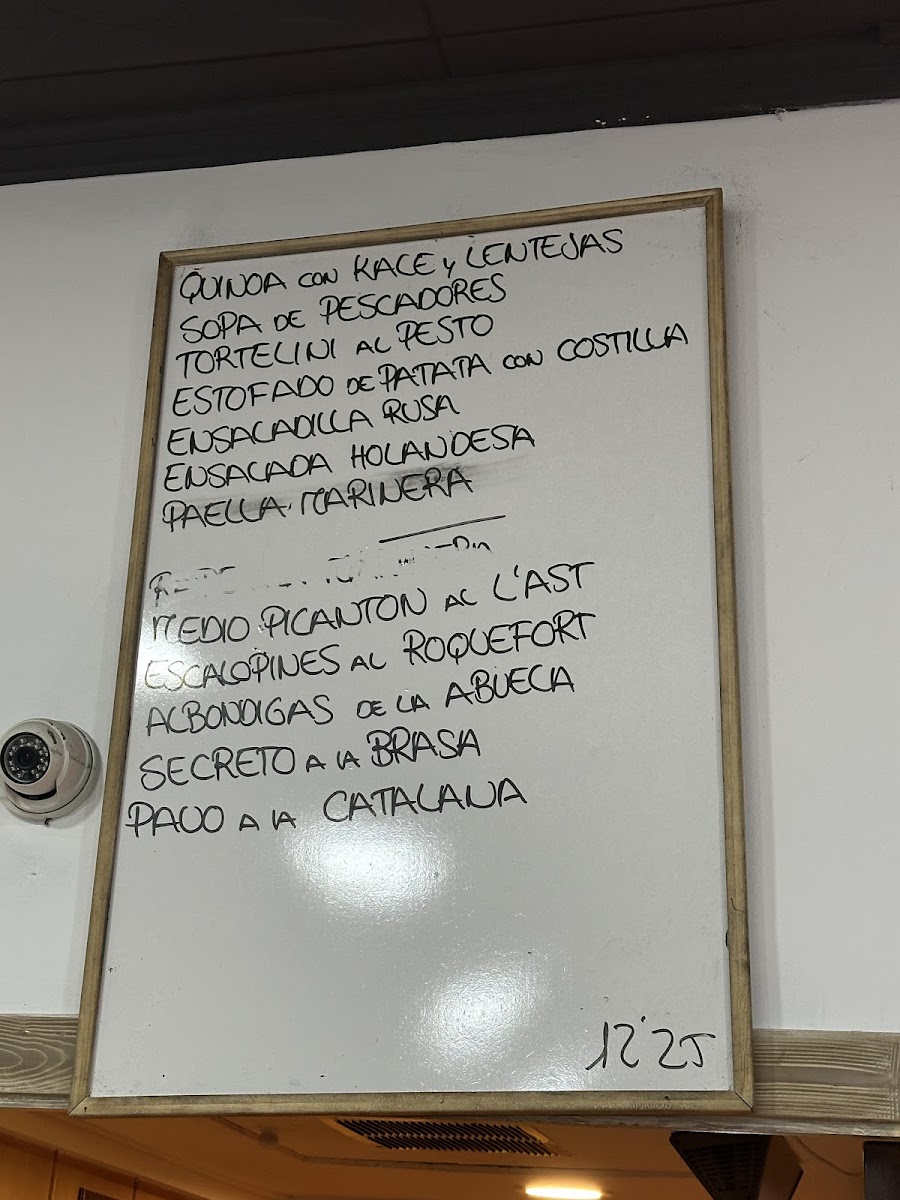 QUINOA CON KALE Y LENTEJAS
SOPA DE PESCADORES
TORTELINI AL PESTO
ESTOFADO DE PATATA CON COSTILLA
ENSALADILLA RUSA
ENSALADA HOLANDESA
PAELLA MARINERA
MEDIO PICANTON AL L'AST
ESCALOPINES AL ROQUEFORT
ALBONDIGAS DE LA ABUELA
SECRETO A LA BRASA
PAVO A LA CATALANA
12'25